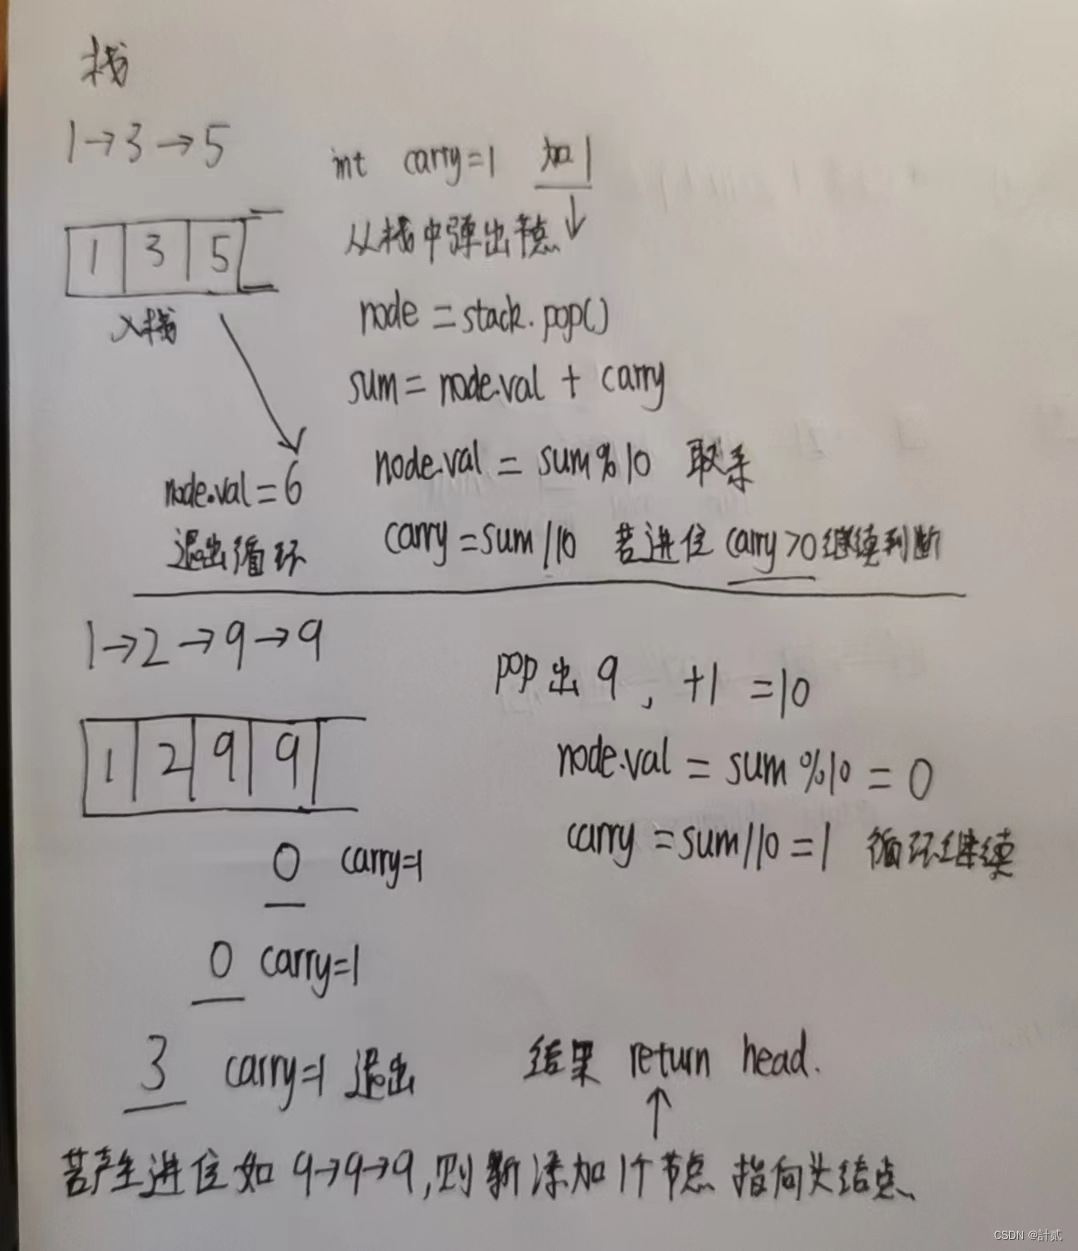 栈
1→3→5
int carry=1 加1
从栈中弹出节点
1 3 5
入栈
node = stack.pop()
sum = node.val + carry
node.val = sum%10 取余
node.val = 6
carry = sum//10 若进位 carry>0继续判断
退出循环
1→2→9→9
pop出9, +1 =10
1 2 9 9
node.val = sum%10 = 0
carry = sum//10 = 1 循环继续
0 carry=1
0 carry=1
3 carry=1 退出
结果 return head.
若产生进位如 9→9→9,则新添加1个节点 指向头结点
CSDN @計贰